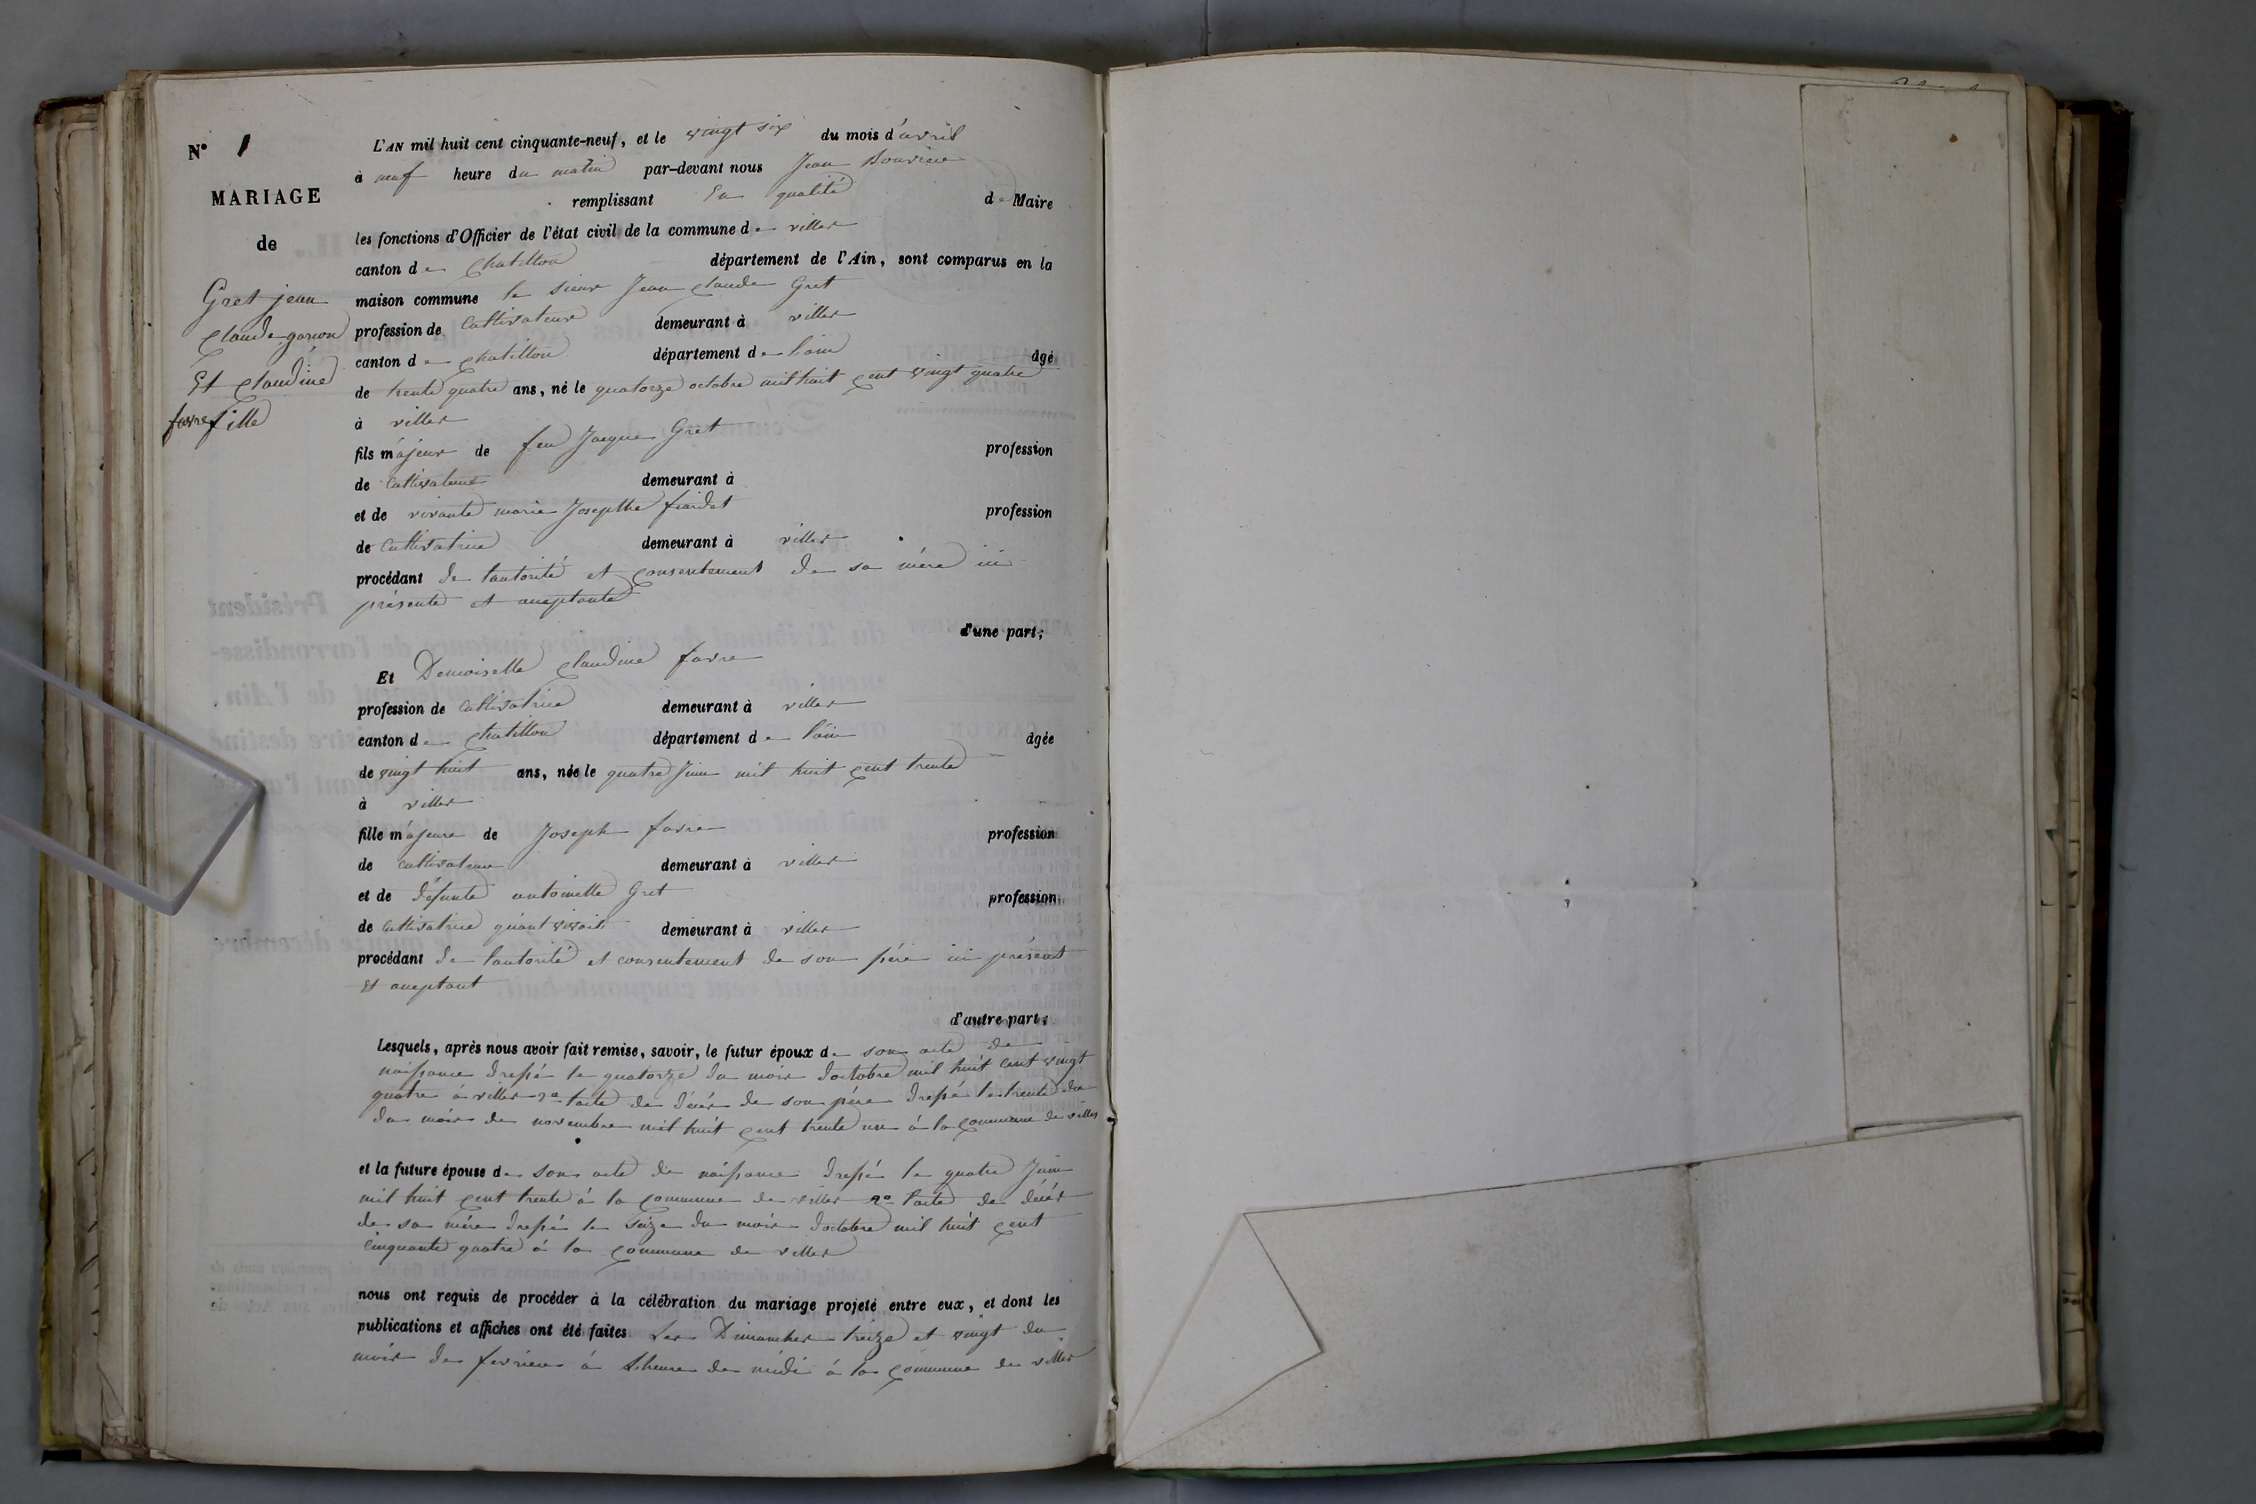 N° 1
MARIAGE
de
Gret jean
Claude garcon
Et Claudine
favre fille
L'AN mil huit cent cinquante-neuf, et le vingt six du mois d'avril
à neuf heure du matin par-devant nous Jean Bouvier
remplissant En qualité de Maire
les fonctions d'Officier de l'état civil de la commune de villes
canton de Chatillon département de l'Ain, sont comparus en la
maison commune le sieur Jean Claude Gret
profession de Cultivateur demeurant à villes
canton de Chatillon département de lain âgé
de trente quatre ans, né le quatorze octobre mil huit Cent vingt quatre
à villes
fils majeur de feu Jacque Gret profession
de Cultivateur demeurant à
et de vivante marie Josepthe profession
de Cultivatrice demeurant à villes
procédant de lautorité et Consentement de sa mére ici
présente et aceptante
d'une part;
Et Demoiselle Claudine favre
profession de Cultivatrice demeurant à villes
canton de Chatillon département de lain âgée
de vingt huit ans, née le quatre Juin mil huit Cent trente
à villes
fille majeure de Joseph favre profession
de Cultivateur demeurant à villes
et de défunte antoinette Gret profession
de Cultivatrice demeurant à villes
procédant de lautorité et consentement de son pére ici présent
Et aceptant
d'autre part;
Lesquels, après nous avoir fait remise, savoir, le futur époux de son acte de
naissance dressé le quatorze du mois doctobre mil huit Cent vingt
quatre à villes 2° lacte de décés de son pére dressé le trente du
du mois de novembre mil huit Cent trente un á la Commune de villes
et la future épouse de son acte de naissance dressé le quatre Juin
mil huit Cent trente á la Commune de villes 2° lacte de décés
de sa mére dressé le seize du mois doctobre mil huit Cent
Cinquante quatre á la Commune de villes
nous ont requis de procéder à la célébration du mariage projeté entre eux, et dont les
publications et affiches ont été faites Les Dimanches treize et vingt du
mois de fevrier á lheure de midi á la Commune de villes